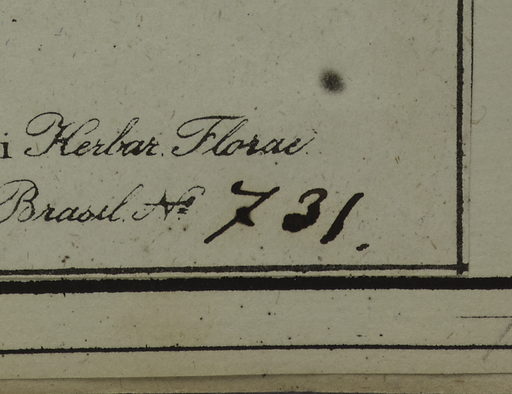 i Herbar. Florae
Brasil. Nº 731.